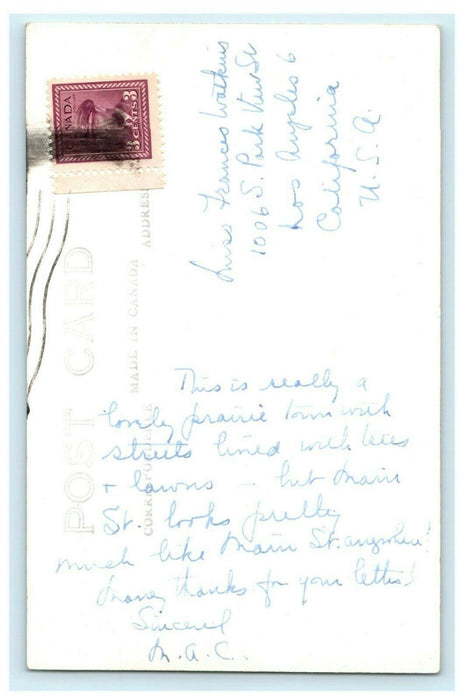 CANADA
3 CENTS 3
POST CARD
CORRESPONDENCE MADE IN CANADA ADDRESS
Miss Frances Watkins
1006 S. Park View St
Los Angeles 6
California
U.S.A.
This is really a
lovely prairie town with
streets lined with trees
+ lawns – but Main
St. looks pretty
much like Main St. anywhere!
Many thanks for your letter!
Sincerel
M.A.C.